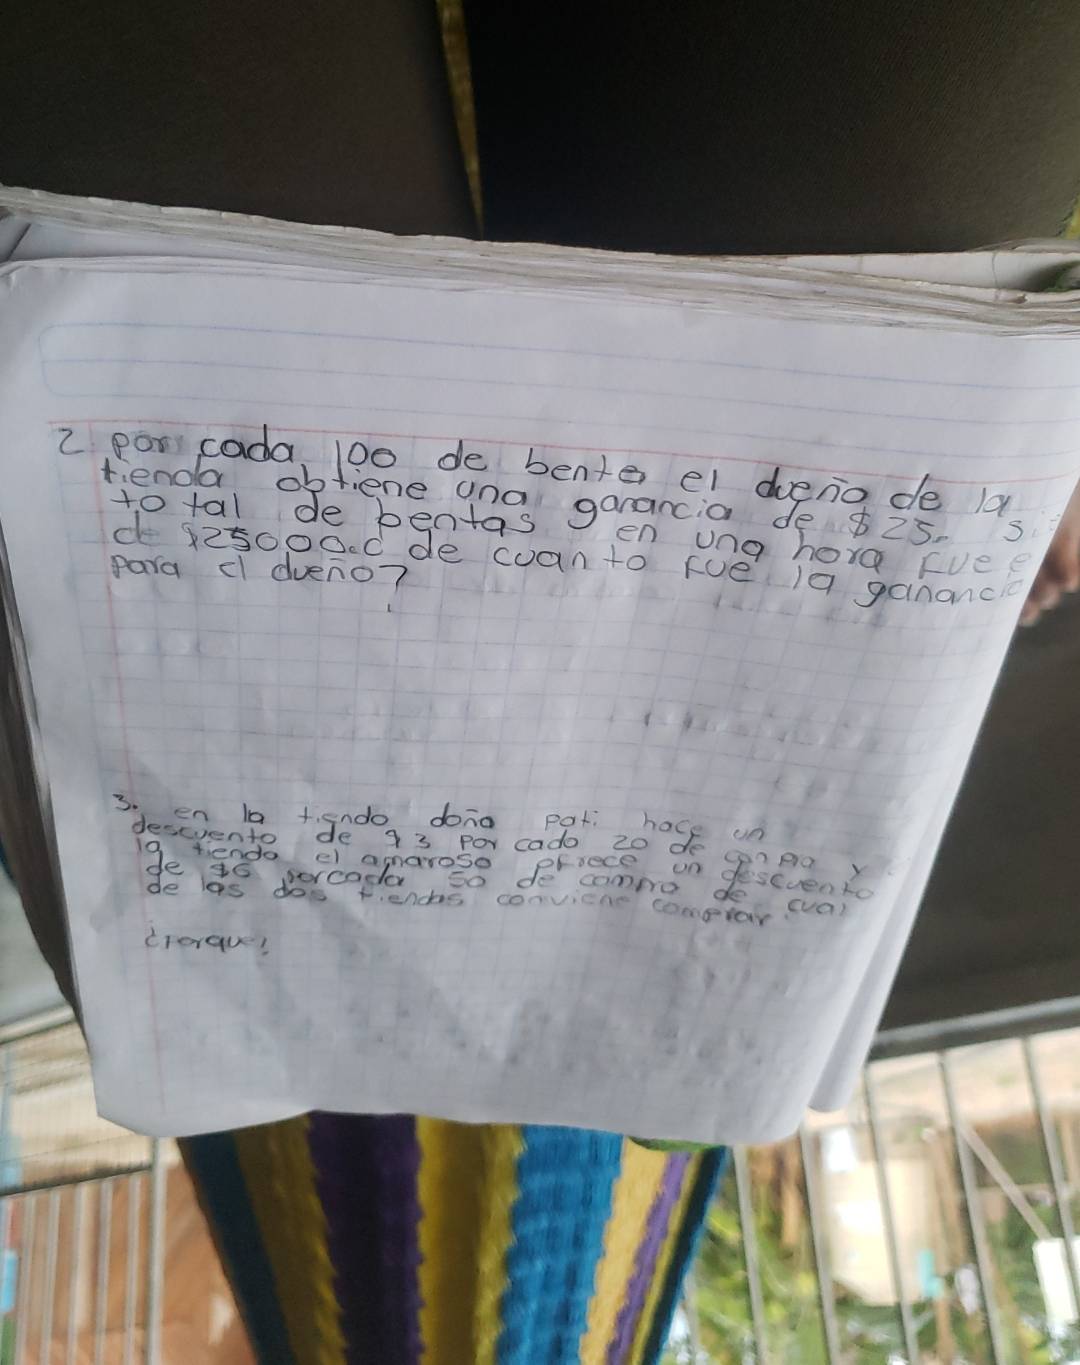 2 por cada 100 de bente el dueño de la
tienda obtiene una ganancia de $25. si
to tal de bentas en una hora fue
de $25000.0 de cuanto fue la ganancia
para el dueño?
3. en la tiendo doña pati hace un
descuento de $3 por cado 20 de compra y
la tiendo el amaroso ofrece un descuento
de $6 porcada 50 de compra de cual
de las dos tiendas conviene comprar.
¿Porque?